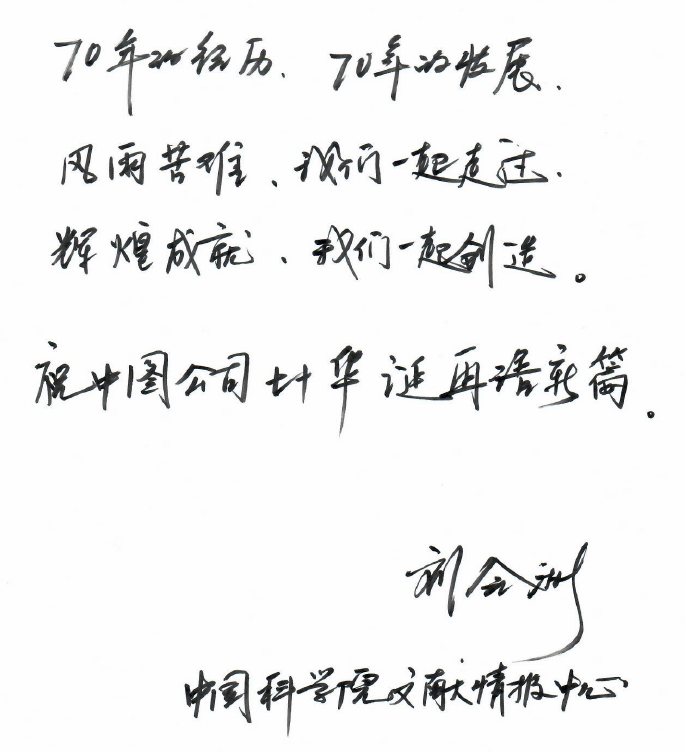 70年的经历、70年的发展、
风雨苦难、我们一起走过、
辉煌成就、我们一起创造。
祝中图公司七十华诞再谱新篇。
刘会洲
中国科学院文献情报中心